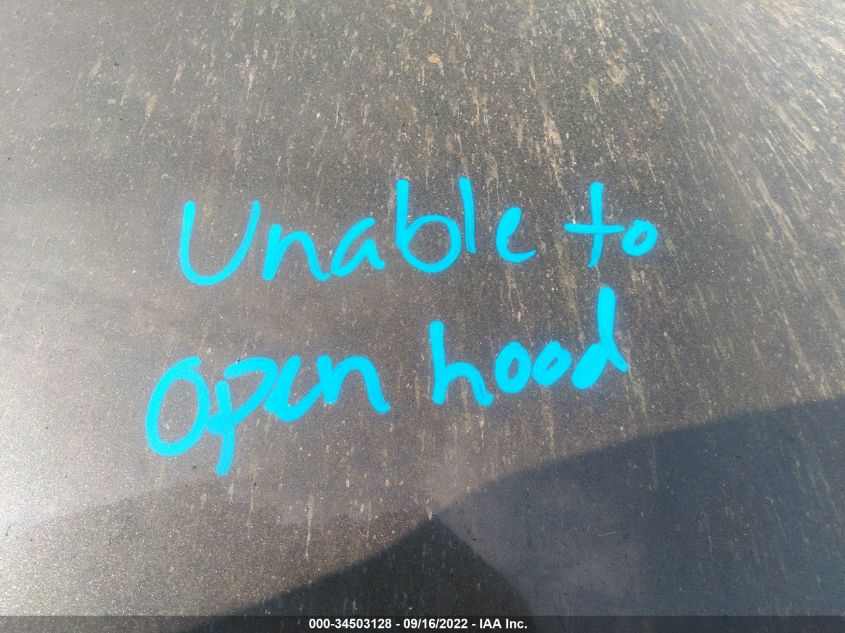 Unable to
Open hood
000-34503128 - 09/16/2022 - IAA Inc.